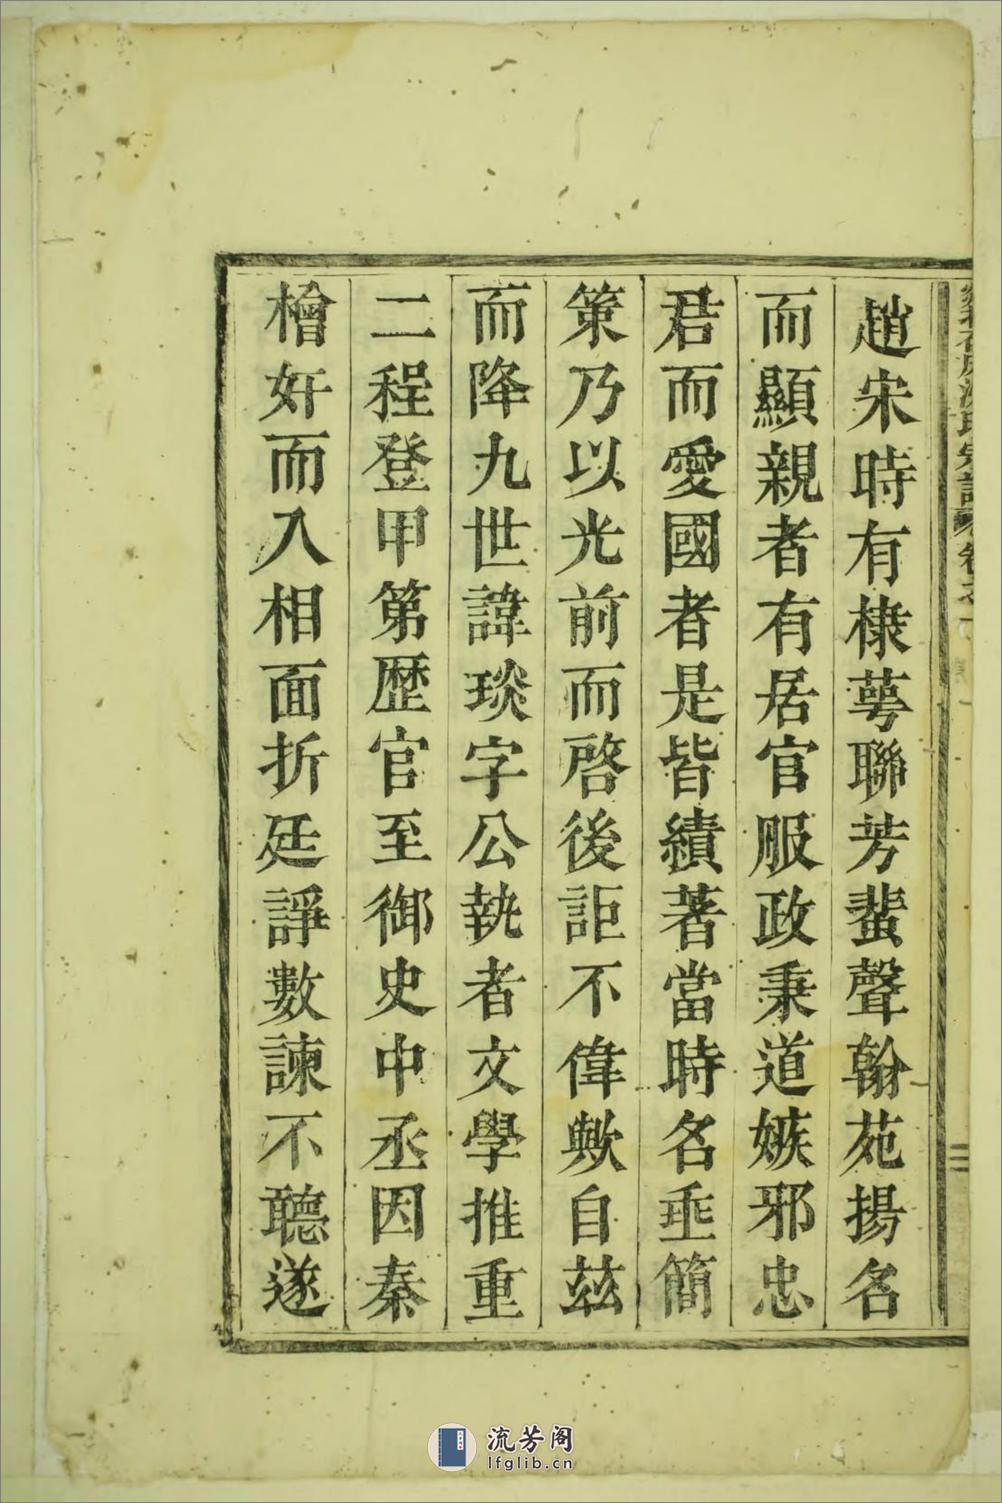 趙宋時有棣蕚聯芳蜚聲翰苑揚名
而顯親者有居官服政秉道嫉邪忠
君而愛國者是皆績著當時名垂簡
策乃以光前而啓後詎不偉歟自兹
而降九世諱琰字公執者文學推重
二程登甲第歴官至御史中丞因秦
檜奸而入相面折廷諍數諫不聽遂
流芳阁
lfglib.cn